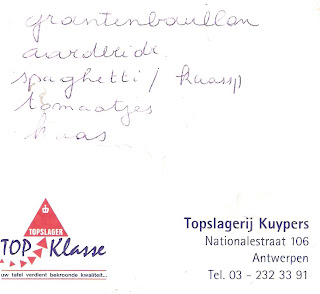 groentenbouillon
aardbeide
spaghetti / kaassp
tomaatjes
kaas
TOPSLAGER
TOP Klasse
uw tafel verdient bekroonde kwaliteit...
Topslagerij Kuypers
Nationalestraat 106
Antwerpen
Tel. 03 - 232 33 91